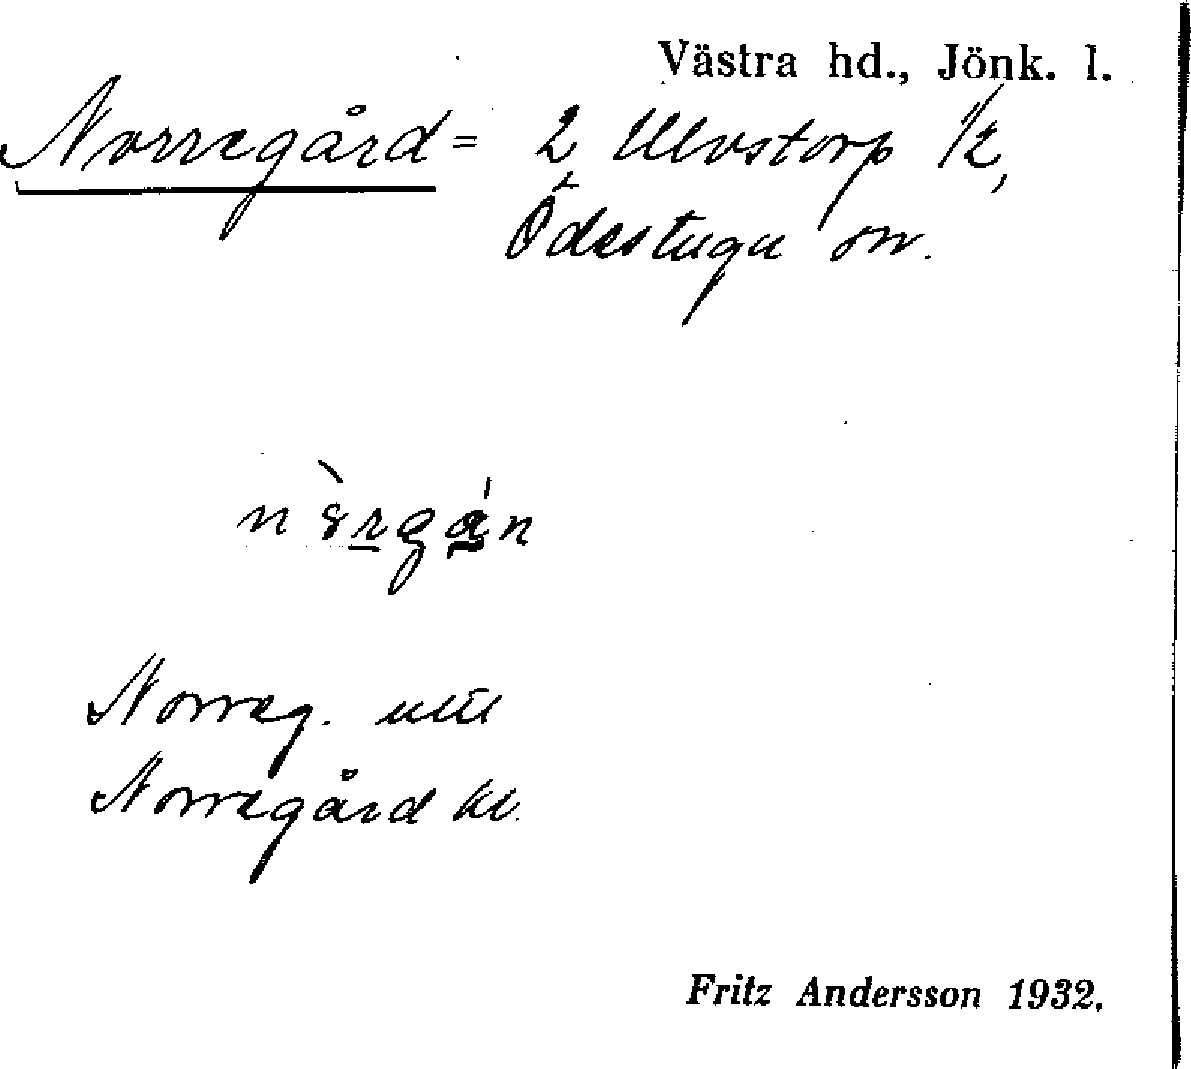 Västra hd., Jönk. l.
Norregård = 2 Ulvstorp 1/2,
Ödestugu sn.
Norreg.
Norregård kl.
Fritz Andersson 1932.